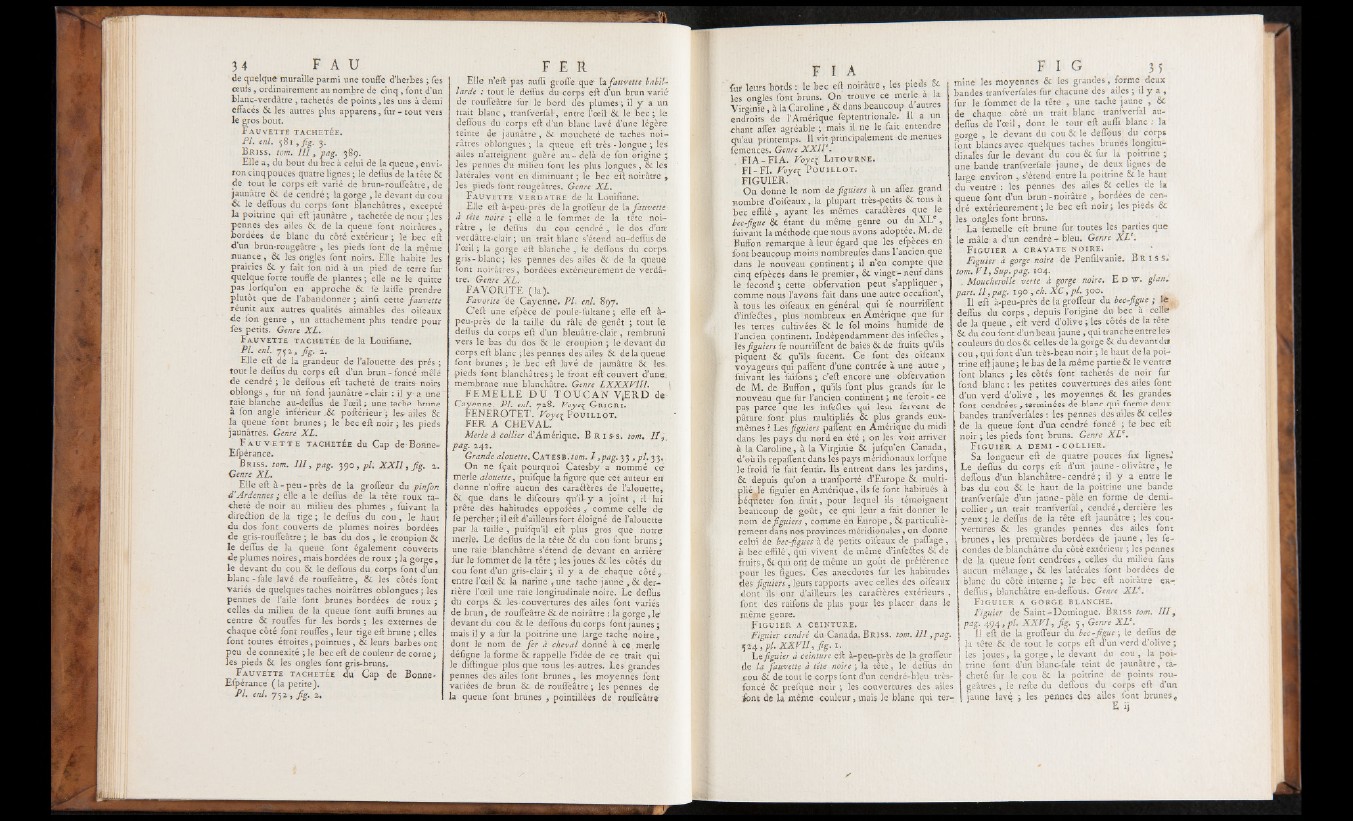 34 F A U
de quelque muraille parmi une touffe d'herbes ; ses
œufs, ordinairement au nombre de cinq, sont d'un
blanc-verdâtre, tachetés de points, les uns à demi
effacés & les autres plus apparens, sur-tout vers
le gros bout.
FAUVETTE TACHETÉE.
Pl. enl. 581, fig. 3.
BRISS. tom. III, pag. 389.
Elle a, du bout du bec à celui de la queue, envi-
ron cinq pouces quatre lignes ; le dessus de la tête &
de tout le corps est varié de brun-roussâtre, de
jaunâtre & de cendré ; la gorge, le devant du cou
& le dessous du corps sont blanchâtres, excepté
la poitrine qui est jaunâtre, tachetée de noir ; les
pennes des ailes & de la queue sont noirâtres,
bordées de blanc du côté extérieur ; le bec est
d'un brun-rougeâtre, les pieds sont de la même
nuance, & les ongles sont noirs. Elle habite les
prairies & y fait son nid à un pied de terre sur
quelque forte touffe de plantes ; elle ne le quitte
pas lorsqu'on en approche & se laisse prendre
plutôt que de l'abandonner ; ainsi cette fauvette
réunit aux autres qualités aimables des oiseaux
de son genre, un attachement plus tendre pour
ses petits. Genre XL.
FAUVETTE TACHETÉE de la Louisiane.
Pl. enl. 752, fig. 2.
Elle est de la grandeur de l'alouette des prés ;
tout le dessus du corps est d'un brun-foncé mêlé
de cendré ; le dessous est tacheté de traits noirs
oblongs, sur un fond jaunâtre-clair : il y a une
raie blanche au-dessus de l'œil ; une tache brune
à son angle inférieur & postérieur ; les ailes &
la queue sont brunes ; le bec est noir ; les pieds
jaunâtres. Genre XL.
FAUVETTE TACHETÉE du Cap de Bonne-
Espérance.
BRISS. tom. III, pag. 390, pl. XXII, fig. 2.
Genre XL.
Elle est à-peu-près de la grosseur du pinson
d'Ardennes ; elle a le dessus de la tête roux ta-
cheté de noir au milieu des plumes, suivant la
direction de la tige ; le dessus du cou, le haut
du dos sont couverts de plumes noires bordées
de gris-roussâtre ; le bas du dos, le croupion &
le dessus de la queue sont également couverts
de plumes noires, mais bordées de roux ; la gorge,
le devant du cou & le dessous du corps sont d'un
blanc-sale lavé de roussâtre, & les côtés sont
variés de quelques taches noirâtres oblongues ; les
pennes de l'aile sont brunes bordées de roux ;
celles du milieu de la queue sont aussi brunes au
centre & rousses sur les bords ; les externes de
chaque côté sont rousses, leur tige est brune ; elles
sont toutes étroites, pointues, & leurs barbes ont
peu de connexité ; le bec est de couleur de corne ;
les pieds & les ongles sont gris-bruns.
FAUVETTE TACHETÉE du Cap de Bonne-
Espérance (la petite).
Pl. enl. 752, fig. 2.
F E R
Elle n'est pas aussi grosse que la fauvette babil-
larde : tout le dessus du corps est d'un brun varié
de roussâtre sur le bord des plumes ; il y a un
trait blanc, transversal, entre l'œil & le bec ; le
dessous du corps est d'un blanc lavé d'une légère
teinte de jaunâtre, & moucheté de taches noi-
râtres oblongues ; la queue est très-longue ; les
ailes n'atteignent guère au-delà de son origine ;
les pennes du milieu sont les plus longues, & les
latérales vont en diminuant ; le bec est noirâtre,
les pieds sont rougeâtres. Genre XL.
FAUVETTE VERDATRE de la Louisiane.
Elle est à-peu-près de la grosseur de la fauvette
à tête noire ; elle a le sommet de la tête noi-
râtre, le dessus du cou cendré, le dos d'un
verdâtre-clair ; un trait blanc s'étend au-dessus de
l'œil ; la gorge est blanche, le dessous du corps
gris-blanc ; les pennes des ailes & de la queue
sont noirâtres, bordées extérieurement de verdâ-
tre. Genre XL.
FAVORITE (la).
Favorite de Cayenne. Pl. enl. 897.
C'est une espèce de poule-sultane ; elle est à-
peu-près de la taille du râle de genêt ; tout le
dessus du corps est d'un bleuâtre-clair, rembruni
vers le bas du dos & le croupion ; le devant du
corps est blanc ; les pennes des ailes & de la queue
sont brunes ; le bec est lavé de jaunâtre & les
pieds sont blanchâtres ; le front est couvert d'une
membrane nue blanchâtre. Genre LXXXVIII.
FEMELLE DU TOUCAN VERD de
Cayenne. Pl. enl. 728. Voyez GRIGRI.
FENEROTET. Voyez POUILLOT.
FER A CHEVAL.
Merle à collier d'Amérique. BRISS. tom. II,
pag. 242.
Grande alouette. CATESB. tom. I, pag. 33, pl. 33.
On ne sçait pourquoi Catesby a nommé ce
merle alouette, puisque la figure que cet auteur en
donne n'offre aucun des caractères de l'alouette,
& que dans le discours qu'il y a joint, il lui
prête des habitudes opposées, comme celle de
se percher ; il est d'ailleurs fort éloigné de l'alouette
par la taille, puisqu'il est plus gros que notre
merle. Le dessus de la tête & du cou sont bruns ;
une raie blanchâtre s'étend de devant en arrière
sur le sommet de la tête ; les joues & les côtés du
cou sont d'un gris-clair ; il y a de chaque côté,
entre l'œil & la narine, une tache jaune, & der-
rière l'œil une raie longitudinale noire. Le dessus
du corps & les couvertures des ailes sont variés
de brun, de roussâtre & de noirâtre : la gorge, le
devant du cou & le dessous du corps sont jaunes ;
mais il y a sur la poitrine une large tache noire,
dont le nom de fer à cheval donné à ce merle
désigne la forme & rappelle l'idée de ce trait qui
le distingue plus que tous les autres. Les grandes
pennes des ailes sont brunes, les moyennes sont
variées de brun & de roussâtre ; les pennes de
la queue sont brunes, pointillées de roussâtre
F I A
sur leurs bords : le bec est noirâtre, les pieds &
les ongles sont bruns. On trouve ce merle à la
Virginie, à la Caroline, & dans beaucoup d'autres
endroits de l'Amérique septentrionale. Il a un
chant assez agréable ; mais il ne le fait entendre
qu'au printemps. Il vit principalement de menues
semences. Genre XXIIe.
FIA-FIA. Voyez LITOURNE.
FI-FI. Voyez POUILLOT.
FIGUIER.
On donne le nom de figuiers à un assez grand
nombre d'oiseaux, la plupart très-petits & tous à
bec effilé, ayant les mêmes caractères que le
bec-figue & étant du même genre ou du XLe,
suivant la méthode que nous avons adoptée. M. de
Buffon remarque à leur égard que les espèces en
sont beaucoup moins nombreuses dans l'ancien que
dans le nouveau continent ; il n'en compte que
cinq espèces dans le premier, & vingt-neuf dans
le second ; cette observation peut s'appliquer,
comme nous l'avons fait dans une autre occasion,
à tous les oiseaux en général qui se nourrissent
d'insectes, plus nombreux en Amérique que sur
les terres cultivées & le sol moins humide de
l'ancien continent. Indépendamment des insectes,
les figuiers se nourrissent de baies & de fruits qu'ils
piquent & qu'ils sucent. Ce sont des oiseaux
voyageurs qui passent d'une contrée à une autre,
suivant les saisons ; c'est encore une observation
de M. de Buffon, qu'ils sont plus grands sur le
nouveau que sur l'ancien continent ; ne seroit-ce
pas parce que les insectes qui leur servent de
pâture sont plus multipliés & plus grands eux-
mêmes ? Les figuiers passent en Amérique du midi
dans les pays du nord en été ; on les voit arriver
à la Caroline, à la Virginie & jusqu'en Canada,
d'où ils repassent dans les pays méridionaux lorsque
le froid se fait sentir. Ils entrent dans les jardins,
& depuis qu'on a transporté d'Europe & multi-
plié le figuier en Amérique, ils se sont habitués à
béqueter son fruit, pour lequel ils témoignent
beaucoup de goût, ce qui leur a fait donner le
nom de figuiers, comme en Europe, & particuliè-
rement dans nos provinces méridionales, on donne
celui de bec-figues à de petits oiseaux de passage,
à bec effilé, qui vivent de même d'insectes & de
fruits, & qui ont de même un goût de préférence
pour les figues. Ces anecdotes sur les habitudes
des figuiers, leurs rapports avec celles des oiseaux
dont ils ont d'ailleurs les caractères extérieurs,
sont des raisons de plus pour les placer dans le
même genre.
FIGUIER A CEINTURE.
Figuier cendré du Canada. BRISS. tom. III, pag.
524, pl. XXVII, fig. 1.
Le figuier à ceinture est à-peu-près de la grosseur
de la fauvette à tête noire ; la tête, le dessus du
cou & de tout le corps sont d'un cendré-bleu très-
foncé & presque noir ; les couvertures des ailes
sont de la même couleur, mais le blanc qui ter-
F I G 35
mine les moyennes & les grandes, forme deux
bandes transversales sur chacune des ailes ; il y a,
sur le sommet de la tête, une tache jaune, &
de chaque côté un trait blanc transversal au-
dessus de l'œil, dont le tour est aussi blanc : la
gorge, le devant du cou & le dessous du corps
sont blancs avec quelques taches brunes longitu-
dinales sur le devant du cou & sur la poitrine ;
une bande transversale jaune, de deux lignes de
large environ, s'étend entre la poitrine & le haut
du ventre : les pennes des ailes & celles de la
queue sont d'un brun-noirâtre, bordées de cen-
dré extérieurement ; le bec est noir ; les pieds &
les ongles sont bruns.
La femelle est brune sur toutes les parties que
le mâle a d'un cendré-bleu. Genre XLe.
FIGUIER A CRAVATE NOIRE.
Figuier à gorge noire de Pensilvanie. BRISS.
tom. VI, Sup. pag. 104.
Moucherolle verte à gorge noire. EDW. glan.
part. II, pag. 190, ch. XC, pl. 300.
Il est à-peu-près de la grosseur du bec-figue ; le
dessus du corps, depuis l'origine du bec à celle
de la queue, est verd d'olive ; les côtés de la tête
& du cou sont d'un beau jaune, qui tranche entre les
couleurs du dos & celles de la gorge & du devant du
cou, qui sont d'un très-beau noir ; le haut de la poi-
trine est jaune ; le bas de la même partie & le ventre
sont blancs ; les côtés sont tachetés de noir sur
fond blanc : les petites couvertures des ailes sont
d'un verd d'olive, les moyennes & les grandes
sont cendrées, terminées de blanc qui forme deux
bandes transversales : les pennes des ailes & celles
de la queue sont d'un cendré foncé ; le bec est
noir ; les pieds sont bruns. Genre XLe.
FIGUIER A DEMI-COLLIER.
Sa longueur est de quatre pouces six lignes.
Le dessus du corps est d'un jaune-olivâtre, le
dessous d'un blanchâtre-cendré ; il y a entre le
bas du cou & le haut de la poitrine une bande
transversale d'un jaune-pâle en forme de demi-
collier, un trait transversal, cendré, derrière les
yeux ; le dessus de la tête est jaunâtre ; les cou-
vertures & les grandes pennes des ailes sont
brunes, les premières bordées de jaune, les se-
condes de blanchâtre du côté extérieur ; les pennes
de la queue sont cendrées, celles du milieu sans
aucun mélange, & les latérales sont bordées de
blanc du côté interne ; le bec est noirâtre en-
dessus, blanchâtre en-dessous. Genre XLe.
FIGUIER A GORGE BLANCHE.
Figuier de Saint-Domingue. BRISS tom. III,
pag. 494, pl. XXVI, fig. 5, Genre XLe.
Il est de la grosseur du bec-figue ; le dessus de
la tête & de tout le corps est d'un verd d'olive ;
les joues, la gorge, le devant du cou, la poi-
trine sont d'un blanc-sale teint de jaunâtre, ta-
cheté sur le cou & la poitrine de points rou-
geâtres, le reste du dessous du corps est d'un
jaune lavé ; les pennes des ailes sont brunes,
E ij